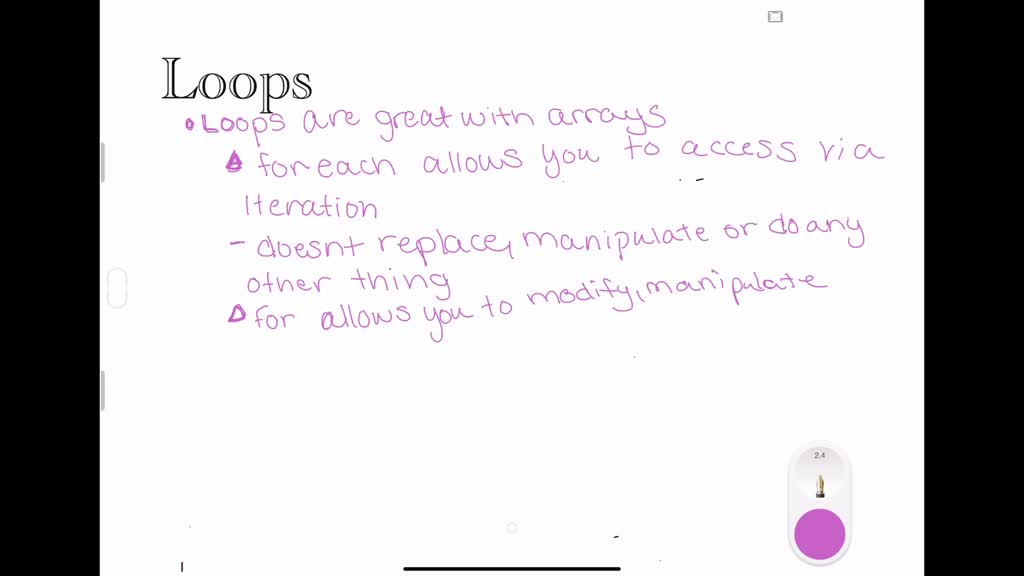 Loops
• Loops are great with arrays
foreach allows you to access via
Iteration
- doesnt replace, manipulate or do any
other thing
for allows you to modify, manipulate
2.4